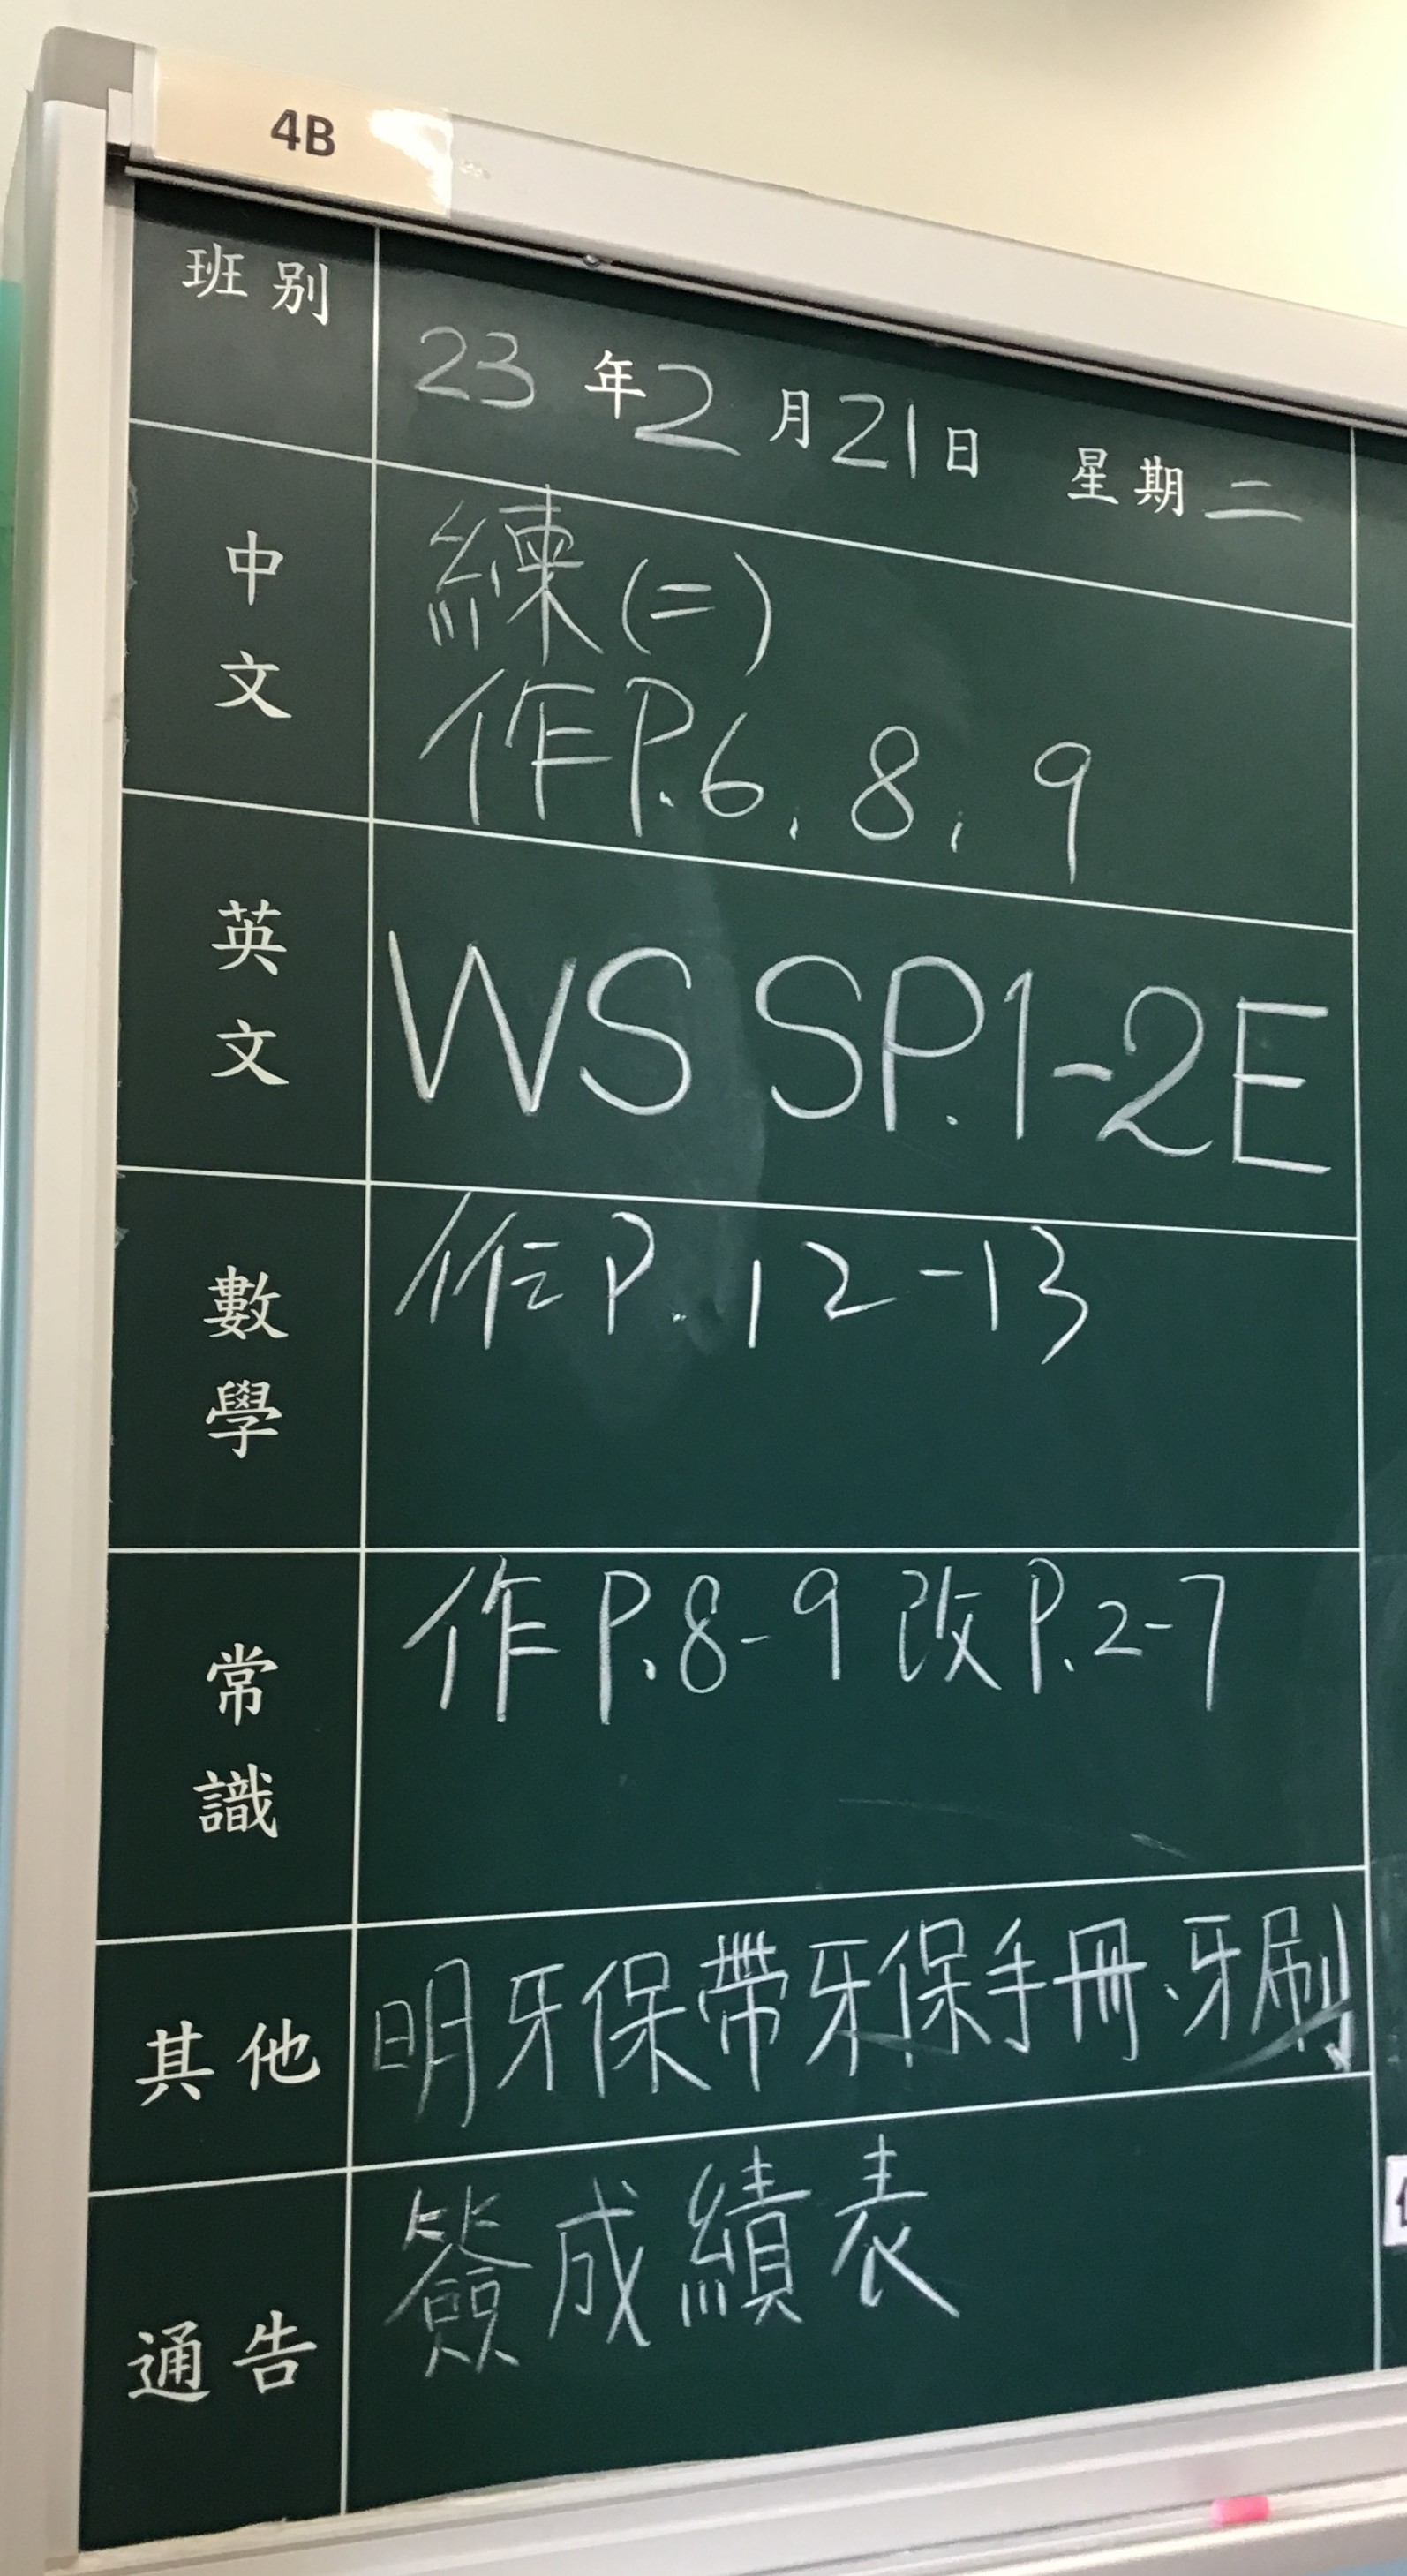 4B
班別 23年2月21日 星期二
中文 練(二)
作P.6, 8, 9
英文 WS SP.1-2E
數學 作P.12-13
常識 作P.8-9 改P.2-7
其他 明牙保帶牙保手冊、牙刷
通告 簽成績表